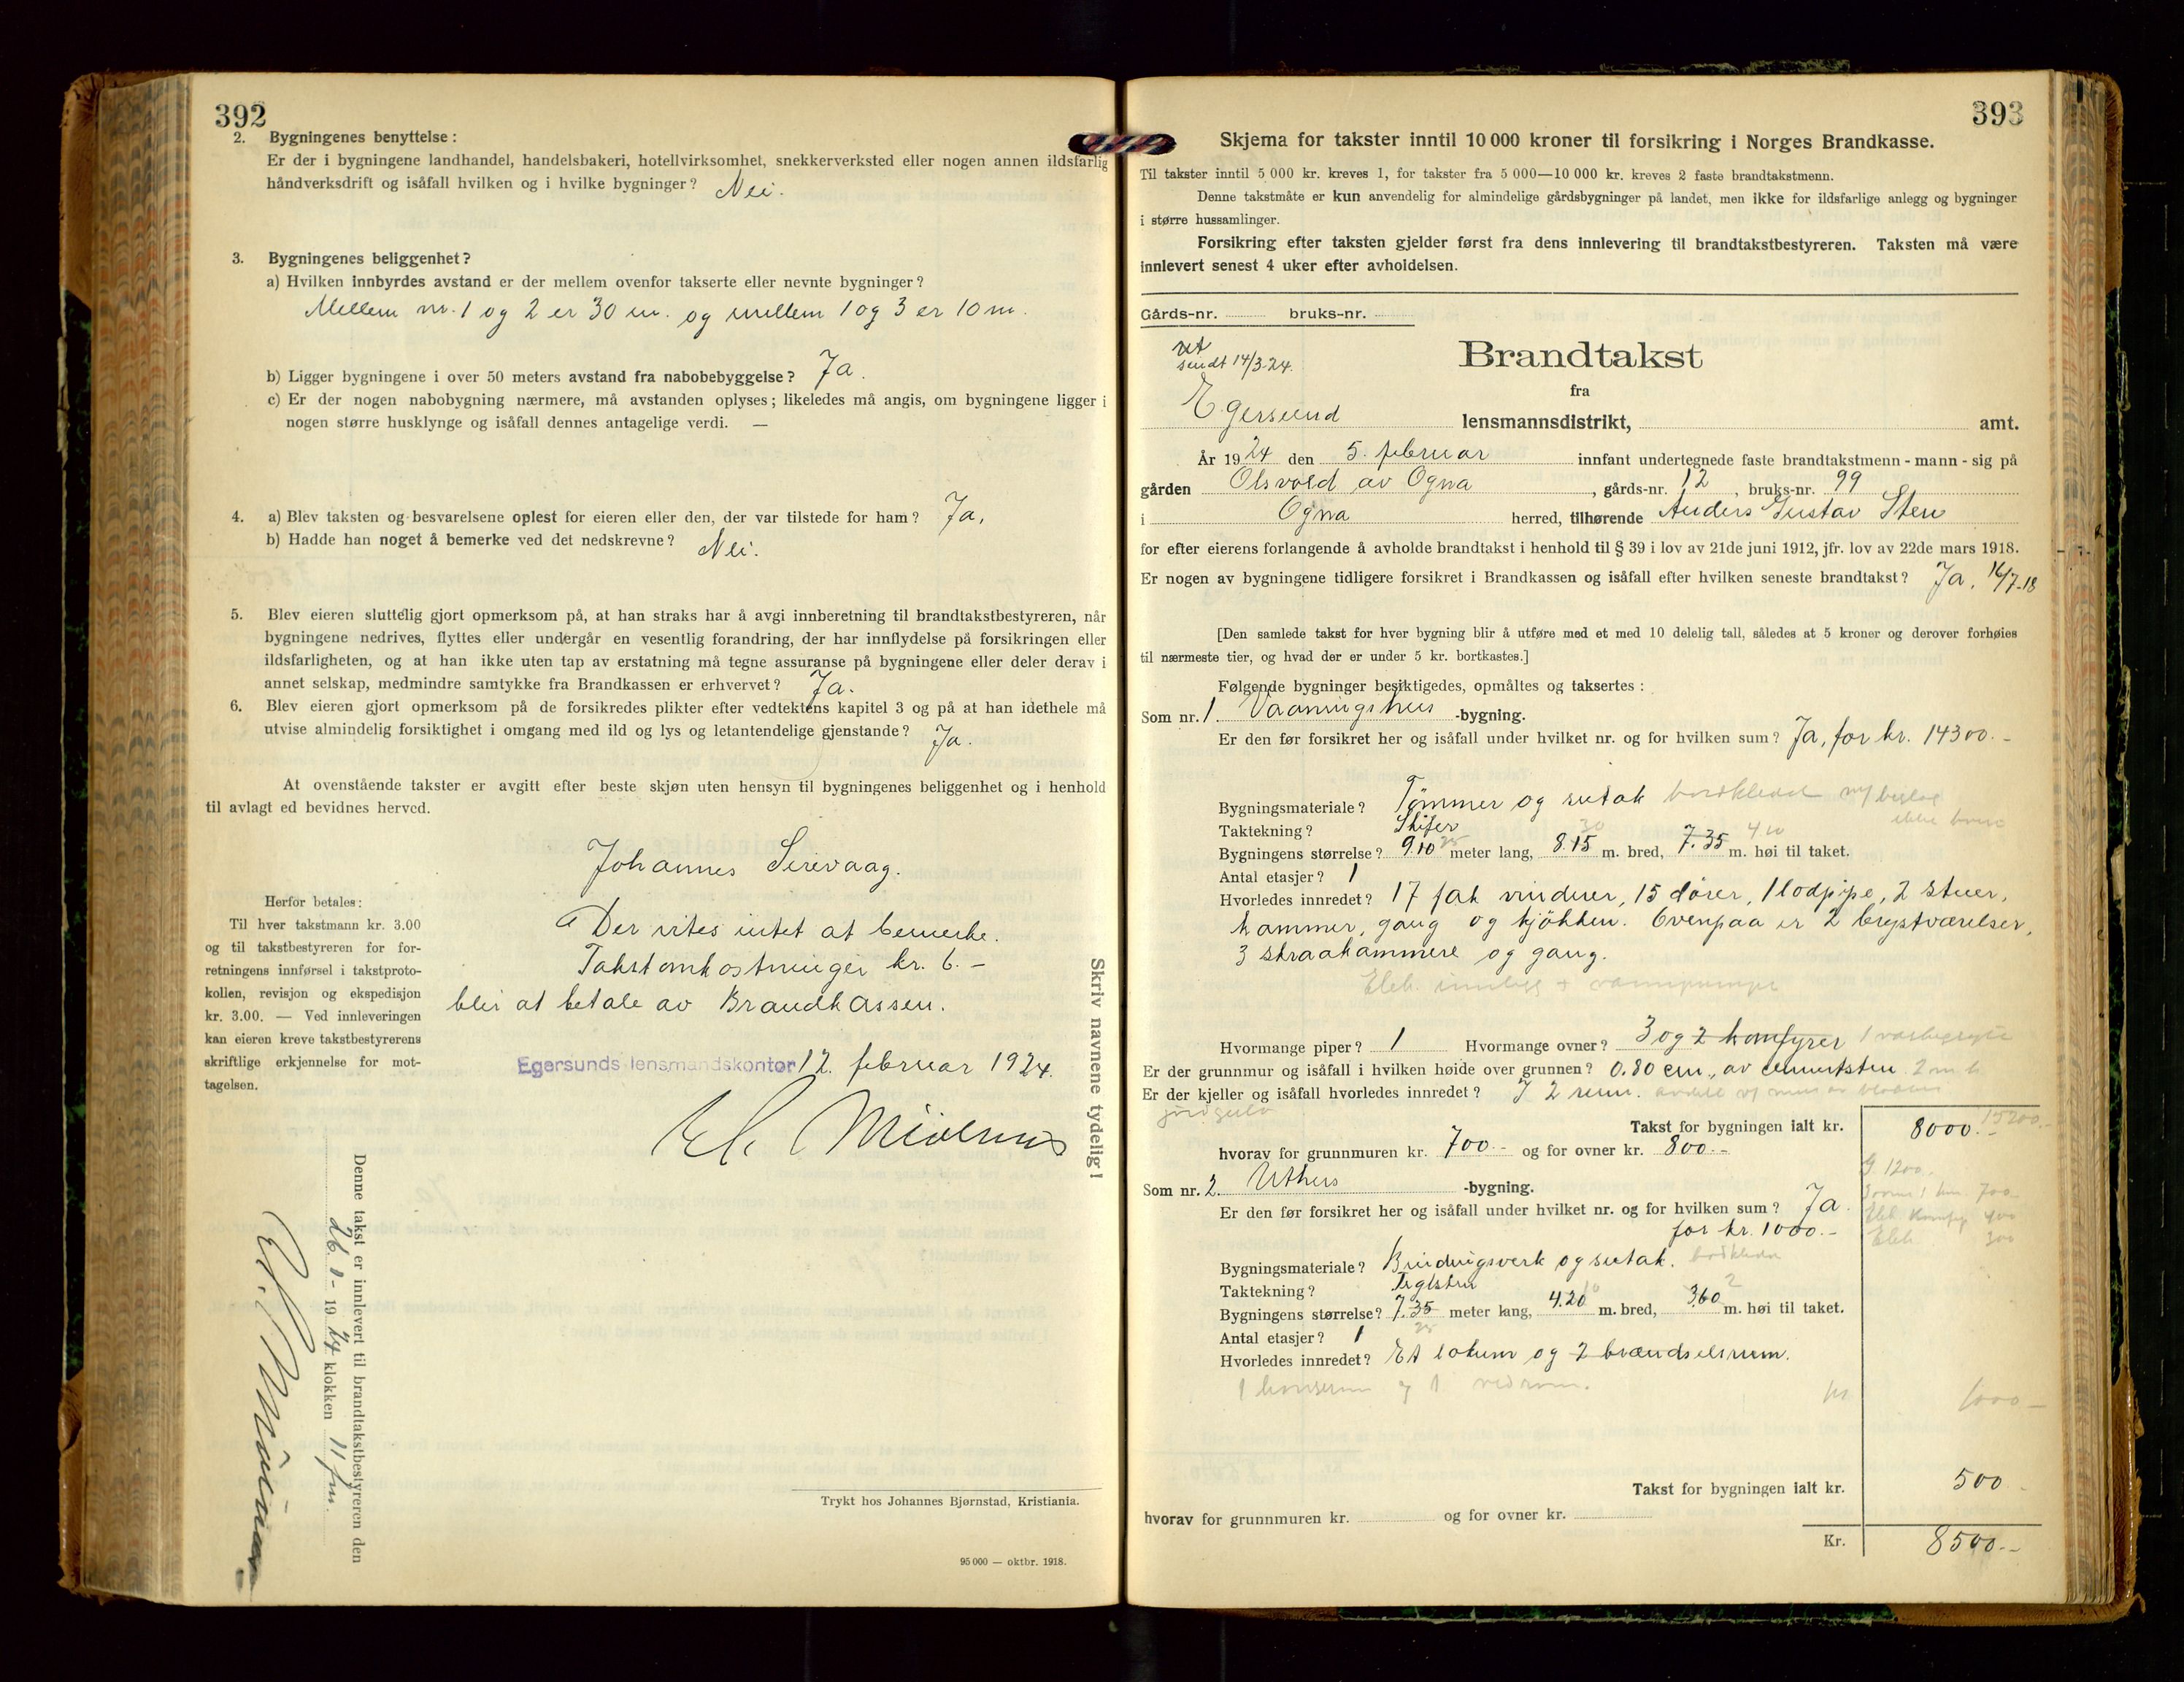 392
2. Bygningenes benyttelse:
Er der i bygningene landhandel, handelsbakeri, hotellvirksomhet, snekkerverksted eller nogen annen ildsfarlig
håndverksdrift og isåfall hvilken og i hvilke bygninger? Nei.
3. Bygningenes beliggenhet?
a) Hvilken innbyrdes avstand er der mellem ovenfor takserte eller nevnte bygninger?
Mellem nr. 1 og 2 er 30 m. og mellem 1 og 3 er 10 m.
b) Ligger bygningene i over 50 meters avstand fra nabobebyggelse? Ja.
c) Er der nogen nabobygning nærmere, må avstanden oplyses; likeledes må angis, om bygningene ligger i
nogen større husklynge og isåfall dennes antagelige verdi. —
4. a) Blev taksten og besvarelsene oplest for eieren eller den, der var tilstede for ham? Ja.
b) Hadde han noget å bemerke ved det nedskrevne? Nei.
5. Blev eieren sluttelig gjort opmerksom på, at han straks har å avgi innberetning til brandtakstbestyreren, når
bygningene nedrives, flyttes eller undergår en vesentlig forandring, der har innflydelse på forsikringen eller
ildsfarligheten, og at han ikke uten tap av erstatning må tegne assuranse på bygningene eller deler derav i
annet selskap, medmindre samtykke fra Brandkassen er erhvervet? Ja.
6. Blev eieren gjort opmerksom på de forsikredes plikter efter vedtektens kapitel 3 og på at han idethele må
utvise almindelig forsiktighet i omgang med ild og lys og letantendelige gjenstande? Ja.
At ovenstående takster er avgitt efter beste skjøn uten hensyn til bygningenes beliggenhet og i henhold
til avlagt ed bevidnes herved.
Johannes Sirevaag.
Herfor betales:
Til hver takstmann kr. 3.00
og til takstbestyreren for for-
retningens innførsel i takstproto-
kollen, revisjon og ekspedisjon
kr. 3.00. — Ved innleveringen
kan eieren kreve takstbestyrerens
skriftlige erkjennelse for mot-
tagelsen.
Der vites intet at bemerke.
Takstomkostninger kr. 6.-
blir at betale av Brandkassen.
Egersunds lensmandskontor 12. februar 1924.
Skriv navnene tydelig!
Denne takst er innlevert til brandtakstbestyreren den
26. 1 - 1924 klokken 11 fm.
Trykt hos Johannes Bjørnstad, Kristiania.
95 000 — oktbr. 1918.
393
Skjema for takster inntil 10 000 kroner til forsikring i Norges Brandkasse.
Til takster inntil 5 000 kr. kreves 1, for takster fra 5 000—10 000 kr. kreves 2 faste brandtakstmenn.
Denne takstmåte er kun anvendelig for almindelige gårdsbygninger på landet, men ikke for ildsfarlige anlegg og bygninger
i større hussamlinger.
Forsikring efter taksten gjelder først fra dens innlevering til brandtakstbestyreren. Taksten må være
innlevert senest 4 uker efter avholdelsen.
Gårds-nr. bruks-nr.
sendt 14/3-24.
Brandtakst
fra
Egersund lensmannsdistrikt, amt.
År 1924 den 5. februar innfant undertegnede faste brandtakstmenn - mann - sig på
gården Olsvold av Ogna, gårds-nr. 12, bruks-nr. 99
i Ogna herred, tilhørende Anders Gustav Sten
for efter eierens forlangende å avholde brandtakst i henhold til § 39 i lov av 21de juni 1912, jfr. lov av 22de mars 1918.
Er nogen av bygningene tidligere forsikret i Brandkassen og isåfall efter hvilken seneste brandtakst? Ja, 16/7-18
[Den samlede takst for hver bygning blir å utføre med et med 10 delelig tall, således at 5 kroner og derover forhøies
til nærmeste tier, og hvad der er under 5 kr. bortkastes.]
Følgende bygninger besiktigedes, opmåltes og taksertes:
Som nr. 1 Vaaningshus -bygning.
Er den før forsikret her og isåfall under hvilket nr. og for hvilken sum? Ja, for kr. 14300.-
Bygningsmateriale? Tømmer og sutak bordkledd
Taktekning? Skifer
Bygningens størrelse? 9.10 meter lang, 8.15 m. bred, 7.35 m. høi til taket.
Antal etasjer? 1
Hvorledes innredet? 17 fak vinduer, 15 dører, 1 lodpipe, 2 stuer,
kammer, gang og kjøkken. Ovenpaa er 2 brystværelser,
3 skraakammere og gang.
Elek. innlegg + vannpumpe
Hvormange piper? 1 Hvormange ovner? 3 og 2 komfyrer
Er der grunnmur og isåfall i hvilken høide over grunnen? 0.80 cm., av cementsten
Er der kjeller og isåfall hvorledes innredet? I 2 rum.
jordgulv
Takst for bygningen ialt kr. 8000.- 15200.-
hvorav for grunnmuren kr. 700.- og for ovner kr. 800.-
G. 1200.-
Som nr. 2 Uthus -bygning.
Er den før forsikret her og isåfall under hvilket nr. og for hvilken sum? Ja
for kr. 1000.-
Bygningsmateriale? Bindingsverk og sutak. bordkledd
Taktekning? Teglsten
Bygningens størrelse? 7.35 meter lang, 4.20 m. bred, 3.60 m. høi til taket.
Antal etasjer? 1
Hvorledes innredet? Et lokum og 2 brændselsrum.
1 hønserum og 1 vedrum.
1000-
Takst for bygningen ialt kr. 500.
hvorav for grunnmuren kr. og for ovner kr.
Kr. 8500.-